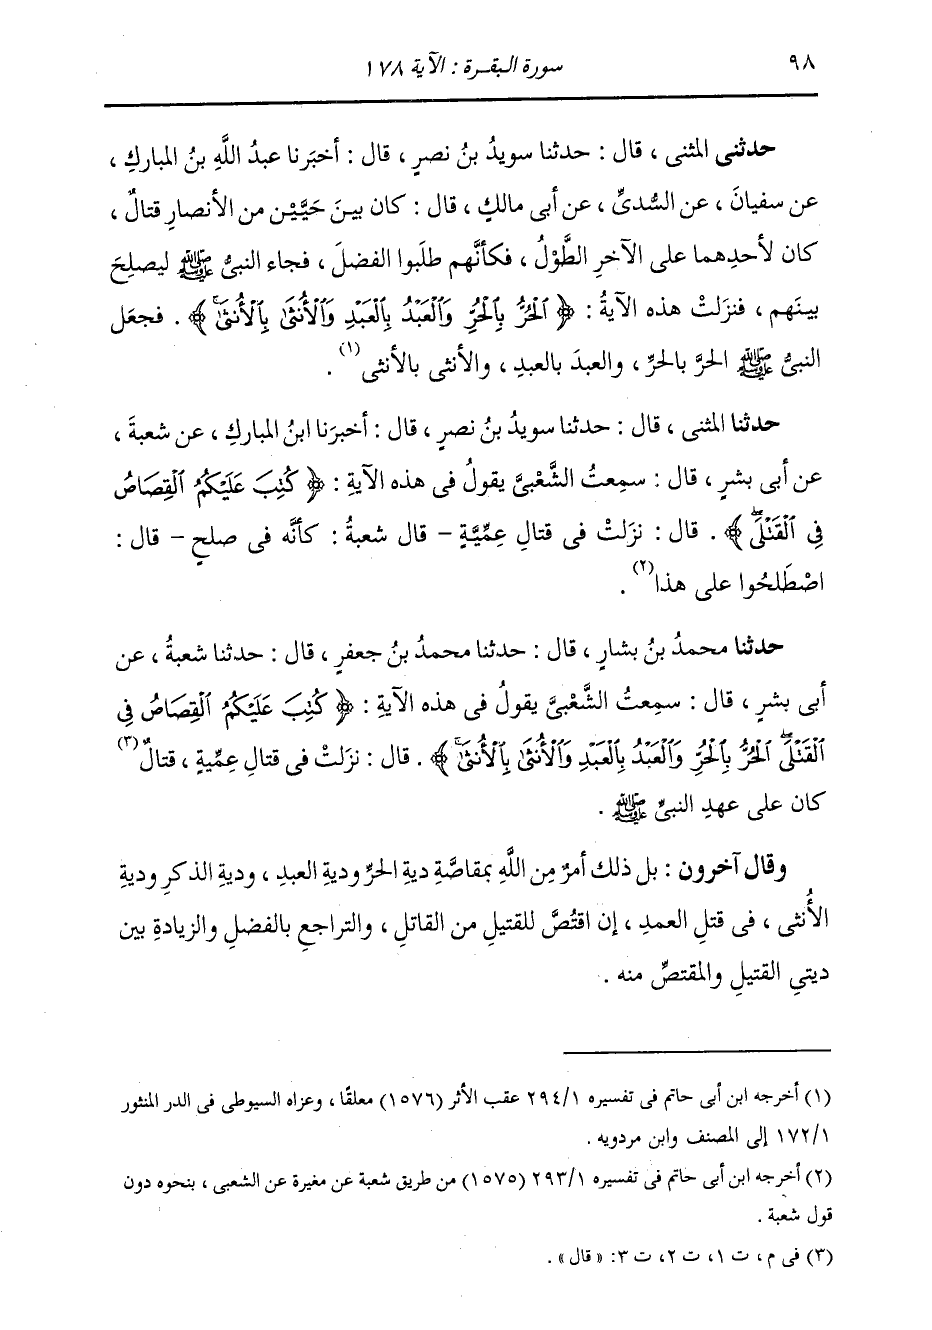 ٩٨
سورة البقرة : الآية ١٧٨
حدثنى المثنى ، قال : حدثنا سويدُ بنُ نصرٍ ، قال : أخبَرنا عبدُ اللَّهِ بنُ المباركِ ،
عن سفيانَ ، عن السُّدىِّ ، عن أبى مالكٍ ، قال : كان بينَ حَيَّيْنِ من الأنصارِ قتالٌ ،
كان لأحدِهما على الآخرِ الطَّوْلُ ، فكأنَّهم طلَبوا الفضلَ ، فجاء النبىُّ ﷺ ليصلِحَ
بينَهم ، فنزَلتْ هذه الآيةُ : ﴿ ٱلْحُرُّ بِٱلْحُرِّ وَٱلْعَبْدُ بِٱلْعَبْدِ وَٱلْأُنثَىٰ بِٱلْأُنثَىٰۚ ﴾ . فجعَل
النبىُّ ﷺ الحرَّ بالحرِّ ، والعبدَ بالعبدِ ، والأنثى بالأنثى (١) .
حدثنا المثنى ، قال : حدثنا سويدُ بنُ نصرٍ ، قال : أخبرَنا ابنُ المباركِ ، عن شعبةَ ،
عن أبى بشرٍ ، قال : سمِعتُ الشَّعْبىَّ يقولُ فى هذه الآيةِ : ﴿ كُتِبَ عَلَيْكُمُ ٱلْقِصَاصُ
فِى ٱلْقَتْلَىۖ ﴾ . قال : نزَلتْ فى قتالِ عِمِّيَّةٍ - قال شعبةُ : كأنَّه فى صلحٍ - قال :
اصْطَلحُوا على هذا (٢) .
حدثنا محمدُ بنُ بشارٍ ، قال : حدثنا محمدُ بنُ جعفرٍ ، قال : حدثنا شعبةُ ، عن
أبى بشرٍ ، قال : سمِعتُ الشَّعْبىَّ يقولُ فى هذه الآيةِ : ﴿ كُتِبَ عَلَيْكُمُ ٱلْقِصَاصُ فِى
ٱلْقَتْلَىۖ ٱلْحُرُّ بِٱلْحُرِّ وَٱلْعَبْدُ بِٱلْعَبْدِ وَٱلْأُنثَىٰ بِٱلْأُنثَىٰۚ ﴾ . قال : نزَلتْ فى قتالِ عِمِّيةٍ ، قتالٌ (٣)
كان على عهدِ النبىِّ ﷺ .
وقال آخرون : بل ذلك أمرٌ مِن اللَّهِ بمقاصَّةِ ديةِ الحرِّ وديةِ العبدِ ، وديةِ الذكرِ وديةِ
الأُنثى ، فى قتلِ العمدِ ، إن اقتُصَّ للقتيلِ من القاتلِ ، والتراجعِ بالفضلِ والزيادةِ بين
ديتىِ القتيلِ والمقتصِّ منه .
(١) أخرجه ابن أبى حاتم فى تفسيره ٢٩٤/١ عقب الأثر (١٥٧٦) معلقًا ، وعزاه السيوطى فى الدر المنثور
١٧٢/١ إلى المصنف وابن مردويه .
(٢) أخرجه ابن أبى حاتم فى تفسيره ٢٩٣/١ (١٥٧٥) من طريق شعبة عن مغيرة عن الشعبى ، بنحوه دون
قول شعبة .
(٣) فى م ، ت ١، ت ٢، ت ٣: « قال » .